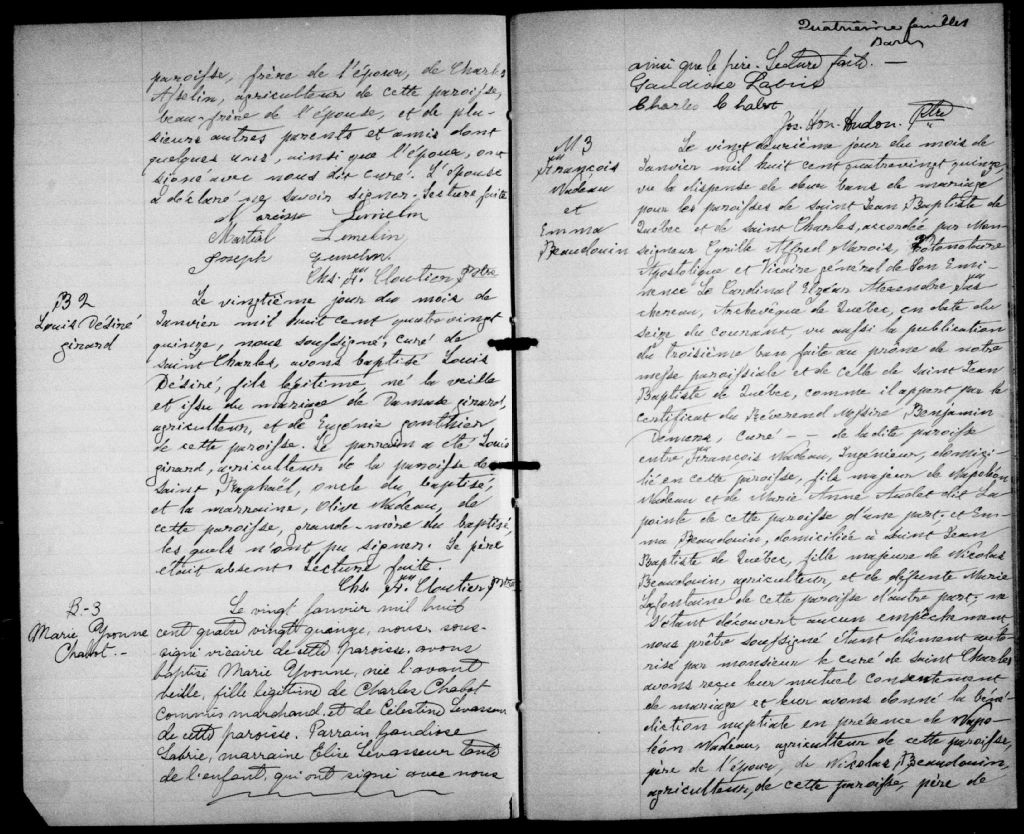 paroisse, frère de l'époux, de Charles
Asselin, agriculteur de cette paroisse,
beau-frère de l'épouse, et de plu-
sieurs autres parents et amis dont
quelques uns, ainsi que l'époux, ont
signé avec nous dit curé. L'épouse
a déclaré ne savoir signer. Lecture faite
Narcisse Lemelin
Martial Lemelin
Joseph Lemelin
Chs. Frs. Cloutier Ptre
B 2
Louis Désiré
girard
Le vingtième jour du mois de
Janvier mil huit cent quatrevingt
quinze, nous soussigné, curé de
saint Charles, avons baptisé Louis
Désiré, fils légitime, né la veille
et issu du mariage de Damase girard,
agriculteur, et de Eugénie gonthier
de cette paroisse. Le parrain a été Louis
girard, agriculteur de la paroisse de
saint Raphaël, oncle du baptisé,
et la marraine, Olive Nadeau, de
cette paroisse, grande-mère du baptisé,
les quels n'ont pu signer. Le père
était absent. Lecture faite.
Chs. Frs. Cloutier, Ptre
B.-3
Marie Yvonne
Chabot.-
Le vingt Janvier mil huit
cent quatre vingt quinze, nous, sous-
signé vicaire de cette paroisse, avons
baptisé Marie Yvonne, née l'avant
veille, fille légitime de Charles Chabot
commis marchand, et de Célestine Levasseur
de cette paroisse. Parrain Gaudiose
Labrie, marraine Elise Levasseur tante
de l'enfant, qui ont signé avec nous
Quatrième feuillet
ainsi que le père. Lecture faite. —
Gaudiose Labrie
Charles Chabot
Jos. Hon. Hudon. Ptre
M 3
François
Nadeau
et
Emma
Beaudouin
Le vingt deuxième jour du mois de
Janvier mil huit cent quatrevingt quinze,
vu la dispense de deux bans de mariage
pour les paroisses de saint Jean Baptiste de
Québec et de saint Charles, accordée par Mon-
seigneur Cyrille Alfred Marois, Protonotaire
Apostolique et Vicaire général de Son Emi-
nence Le Cardinal Elzéar Alexandre Tas
chereau, Archevêque de Québec, en date du
seize du courant, vu aussi la publication
du troisième ban faite au prône de notre
messe paroissiale et de celle de saint Jean
Baptiste de Québec, comme il appert par le
certificat du Révérend Messire Benjamin
Demers, curé - - de la dite paroisse
entre François Nadeau, Ingénieur, domici-
lié en cette paroisse, fils majeur de Napoléon
Nadeau et de Marie Anne Audet dit La
pointe de cette paroisse d'une part; et Em-
ma Beaudouin, domiciliée à Saint Jean
Baptiste de Québec, fille majeure de Nicolas
Beaudouin, agriculteur, et de défunte Marie
Lafontaine de cette paroisse d'autre part; ne
s'étant découvert aucun empêchement,
nous prêtre soussigné étant dûment auto-
risé par monsieur le curé de saint Charles
avons reçu leur mutuel consentement
de mariage et leur avons donné la béné-
diction nuptiale en présence de Napo-
léon Nadeau, agriculteur de cette paroisse,
père de l'époux, de Nicolas Beaudouin,
agriculteur, de cette paroisse, père de